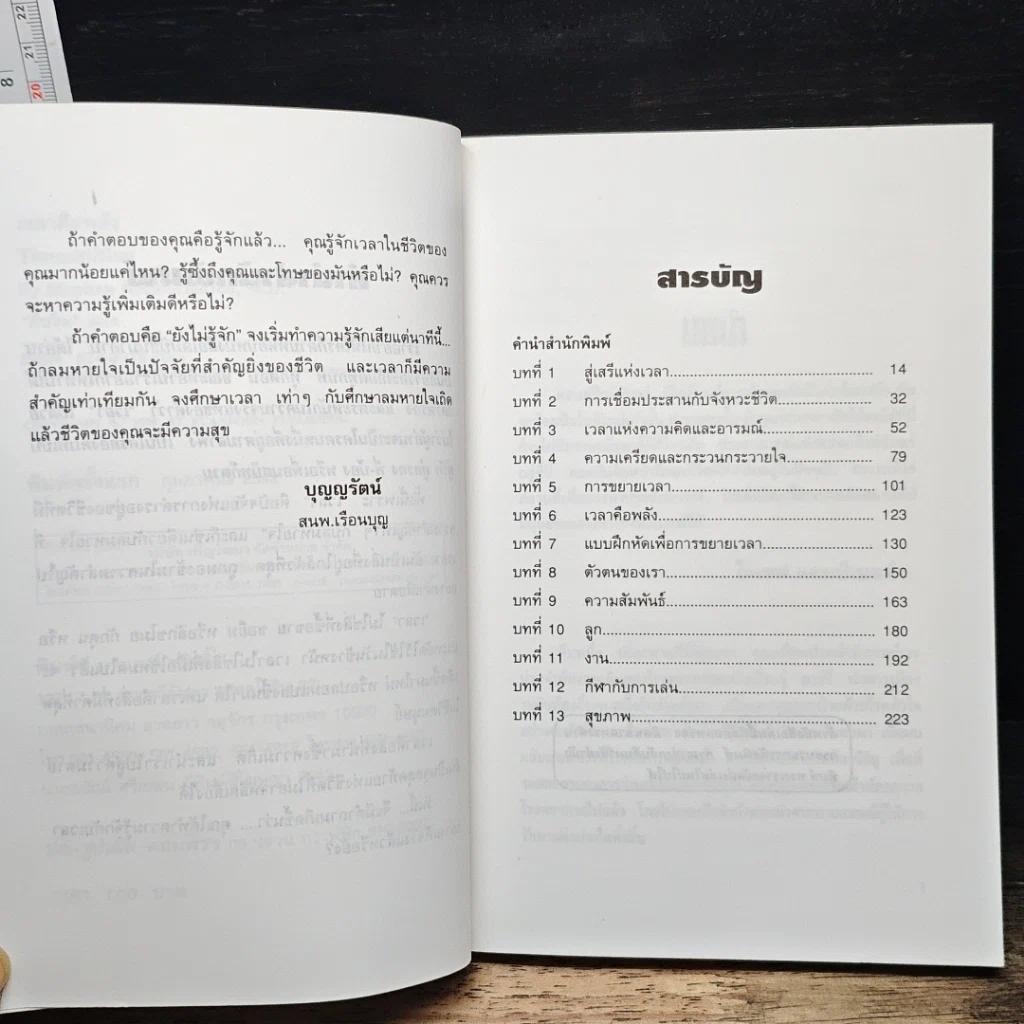 22
21
20
8
ถ้าคำตอบของคุณคือรู้จักแล้ว... คุณรู้จักเวลาในชีวิตของ
คุณมากน้อยแค่ไหน? รู้ซึ้งถึงคุณและโทษของมันหรือไม่? คุณควร
จะหาความรู้เพิ่มเติมดีหรือไม่?
ถ้าคำตอบคือ “ยังไม่รู้จัก” จงเริ่มทำความรู้จักเสียแต่นาทีนี้...
ถ้าลมหายใจเป็นปัจจัยที่สำคัญยิ่งของชีวิต และเวลาก็มีความ
สำคัญเท่าเทียมกัน จงศึกษาเวลา เท่าๆ กับศึกษาลมหายใจเถิด
แล้วชีวิตของคุณจะมีความสุข
บุญญรัตน์
สนพ.เรือนบุญ
สารบัญ
คำนำสำนักพิมพ์
บทที่ 1 สู่เสรีแห่งเวลา 14
บทที่ 2 การเชื่อมประสานกับจังหวะชีวิต 32
บทที่ 3 เวลาแห่งความคิดและอารมณ์ 52
บทที่ 4 ความเครียดและกระวนกระวายใจ 79
บทที่ 5 การขยายเวลา 101
บทที่ 6 เวลาคือพลัง 123
บทที่ 7 แบบฝึกหัดเพื่อการขยายเวลา 130
บทที่ 8 ตัวตนของเรา 150
บทที่ 9 ความสัมพันธ์ 163
บทที่ 10 ลูก 180
บทที่ 11 งาน 192
บทที่ 12 กีฬากับการเล่น 212
บทที่ 13 สุขภาพ 223